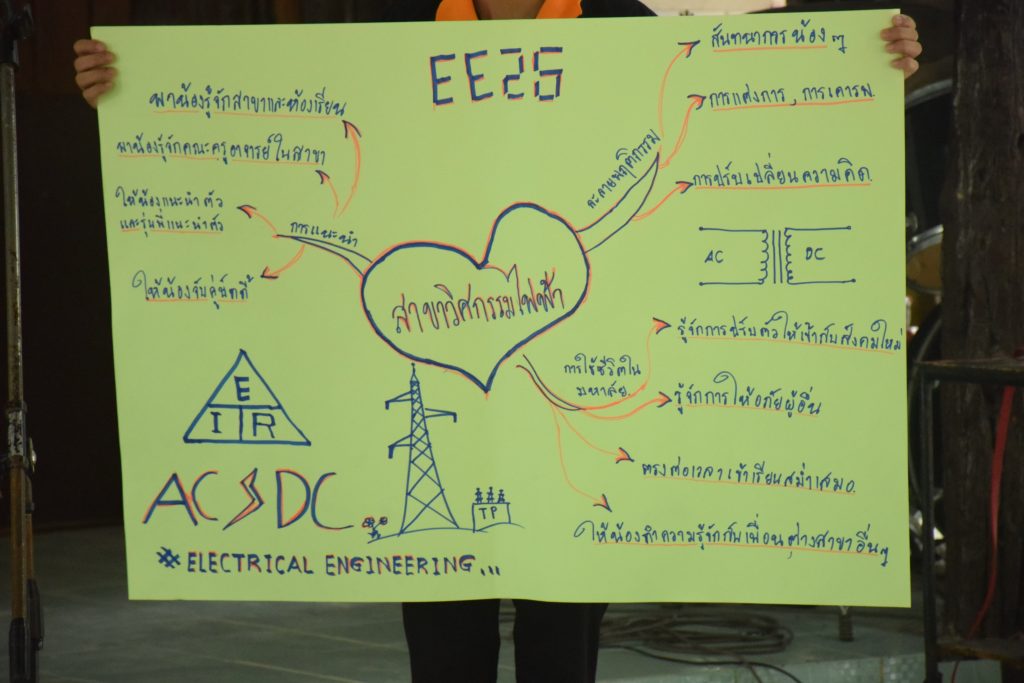 EE25
สันทนาการน้องๆ
การแต่งกาย, การเคารพ.
การปรับเปลี่ยนความคิด.
ละลายพฤติกรรม
พาน้องรู้จักสาขาและห้องเรียน
พาน้องรู้จักคณะครูอาจารย์ในสาขา
ให้น้องแนะนำตัว
และรุ่นพี่แนะนำตัว
ให้น้องจับคู่บัดดี้
การแนะนำ
สาขาวิศกรรมไฟฟ้า
AC DC
การใช้ชีวิตใน
มหาลัย.
รู้จักการปรับตัวให้เข้ากับสังคมใหม่
รู้จักการให้อภัยผู้อื่น
ตรงต่อเวลา เข้าเรียนสม่ำเสมอ.
ให้น้องทำความรู้จักกับเพื่อนต่างสาขาอื่นๆ
E
I R
AC DC
TP
# ELECTRICAL ENGINEERING...